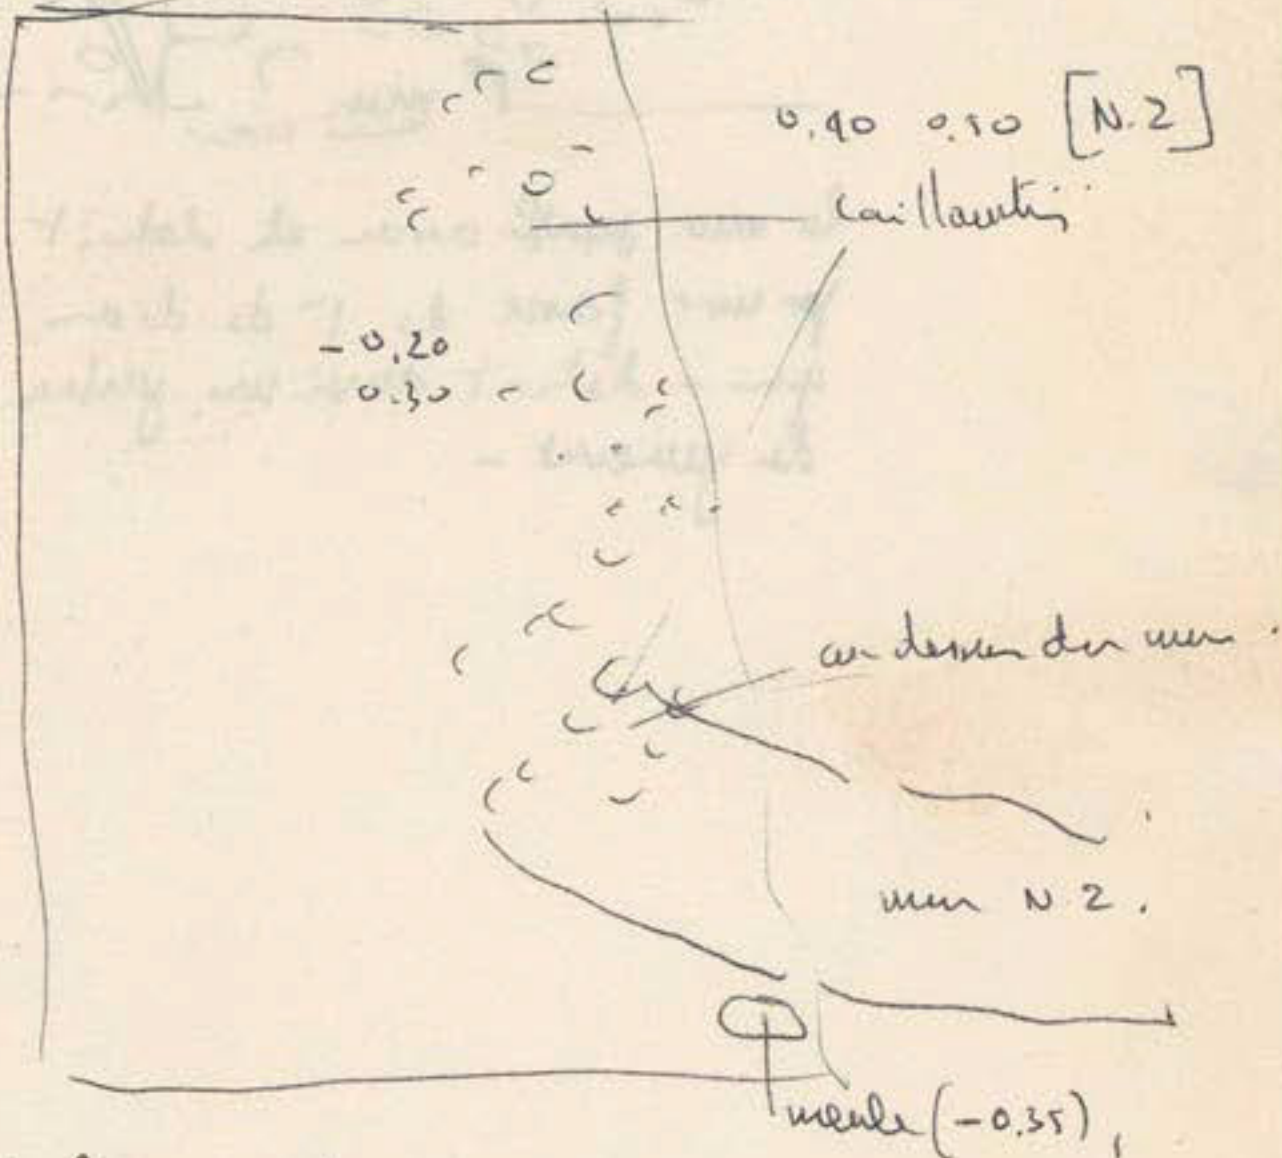 0.40 0.50 [N.2]
cailloutis
-0.20
0.30
au dessus du mur.
mur N 2.
meule (-0.35),